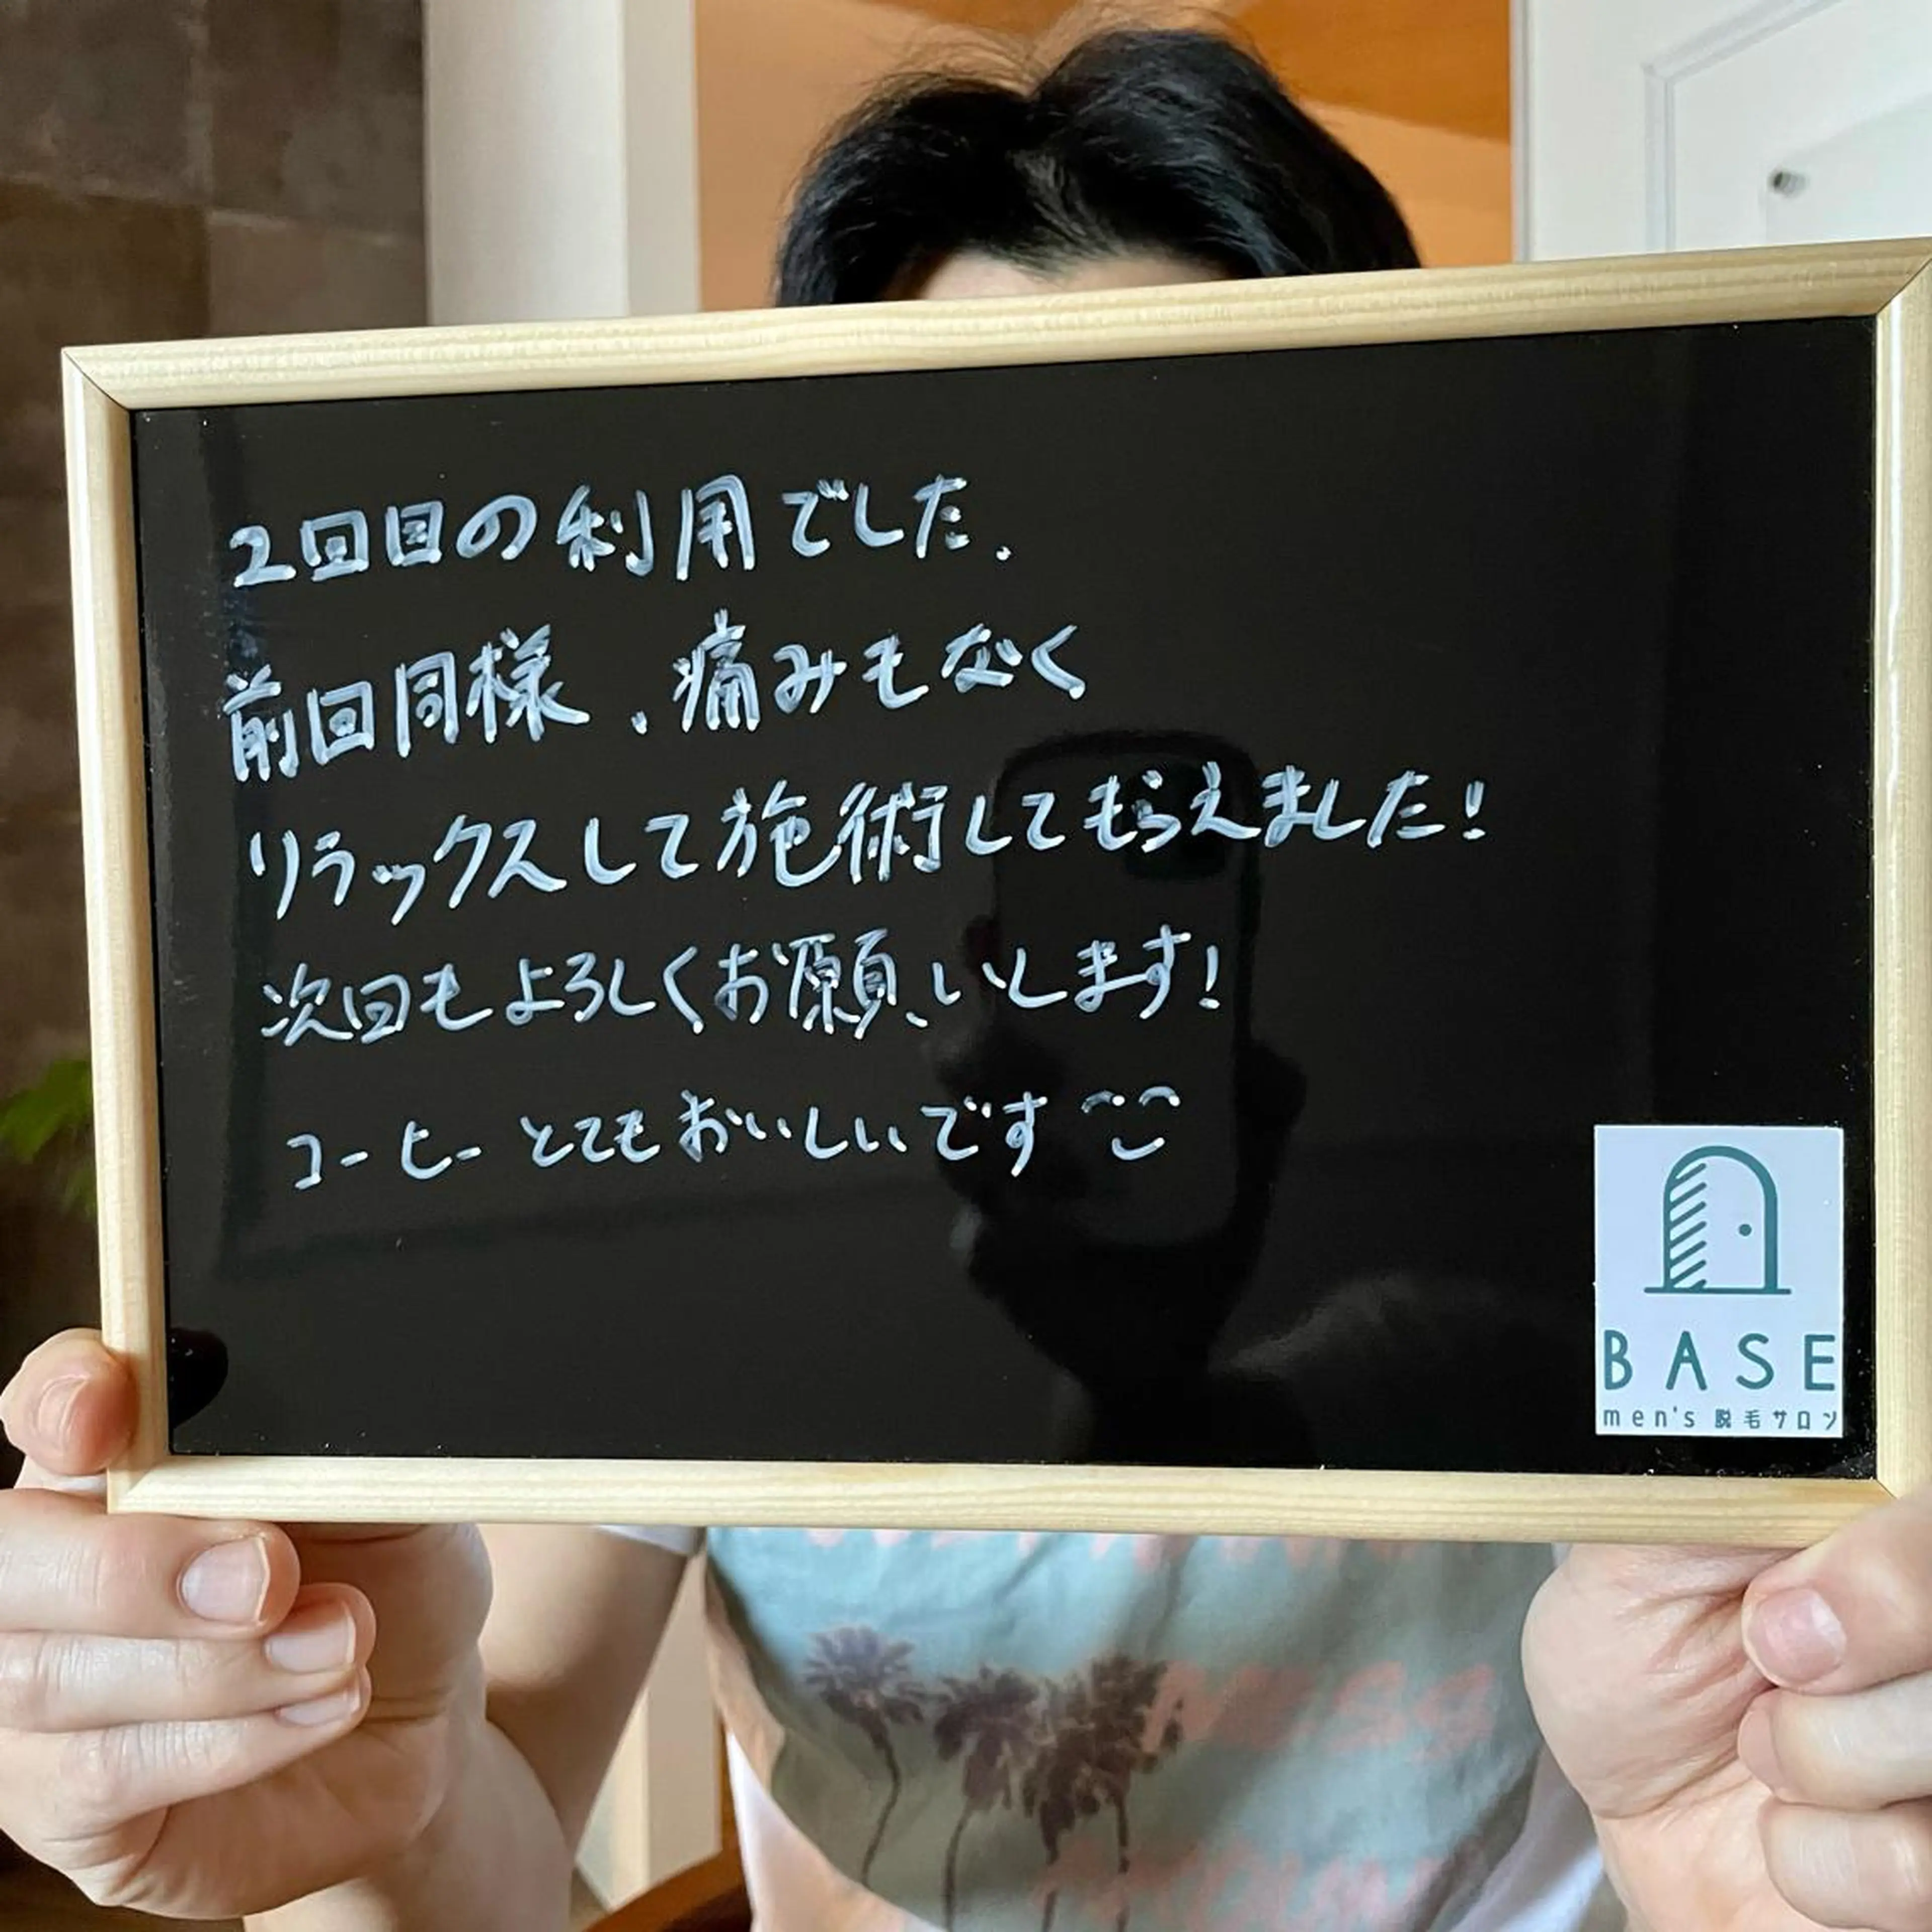 2回目の利用でした.
前回同様.痛みもなく
リラックスして施術してもらえました!
次回もよろしくお願いします!
コーヒーとてもおいしいです
BASE
men's 脱毛サロン